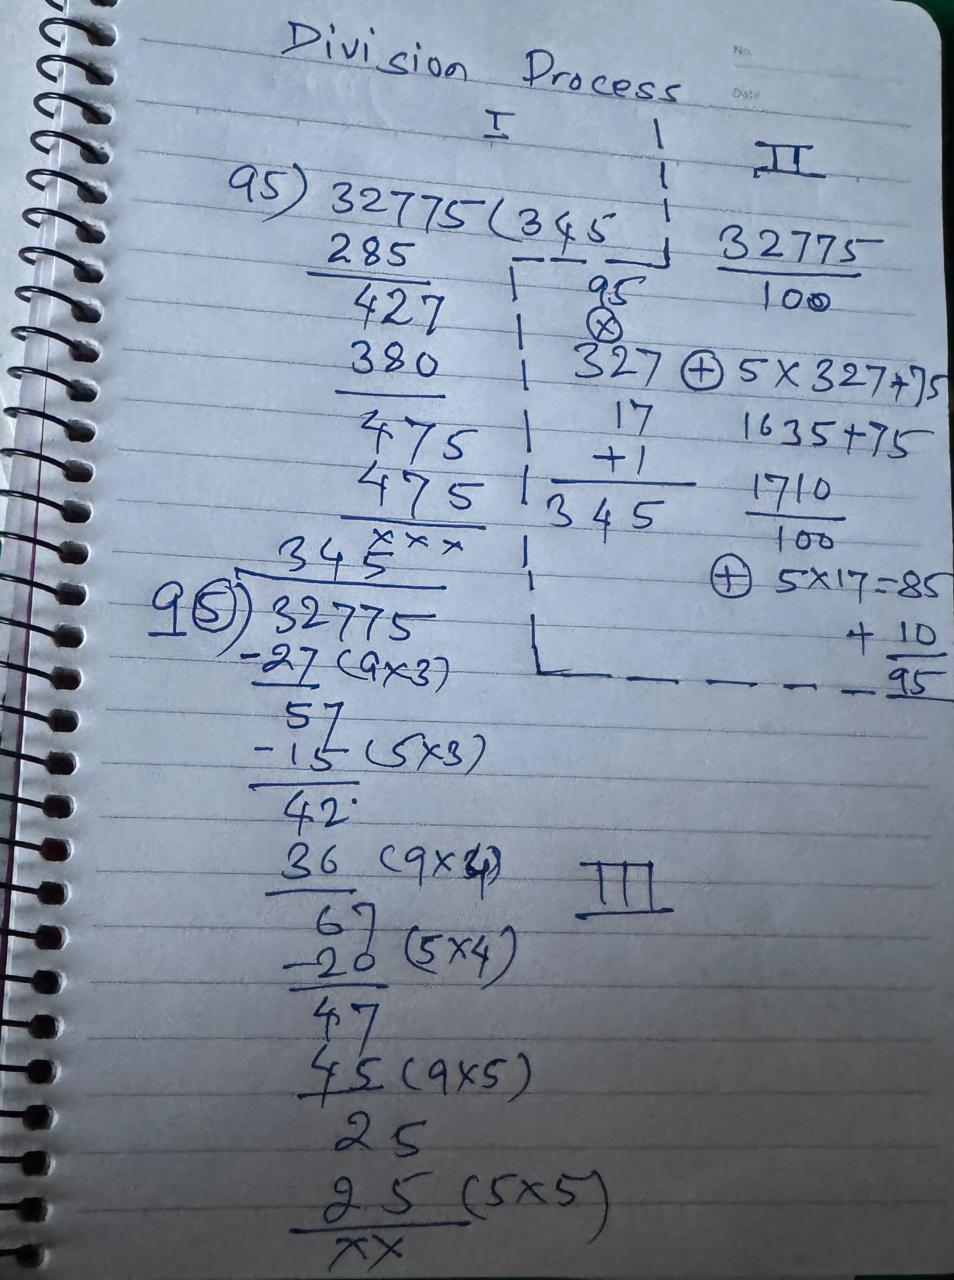 Division Process
No.
Date
I
II
95) 32775 (345
285
427
380
475
475
xxx
95
⊗
327
17
+1
345
32775
100
⊕ 5 x 327 + 75
1635 + 75
1710
100
⊕ 5 x 17 = 85
+ 10
95
345
95) 32775
-27 (9x3)
57
-15 (5x3)
42
36 (9x4)
67
-20 (5x4)
47
45 (9x5)
25
25 (5x5)
xx
III